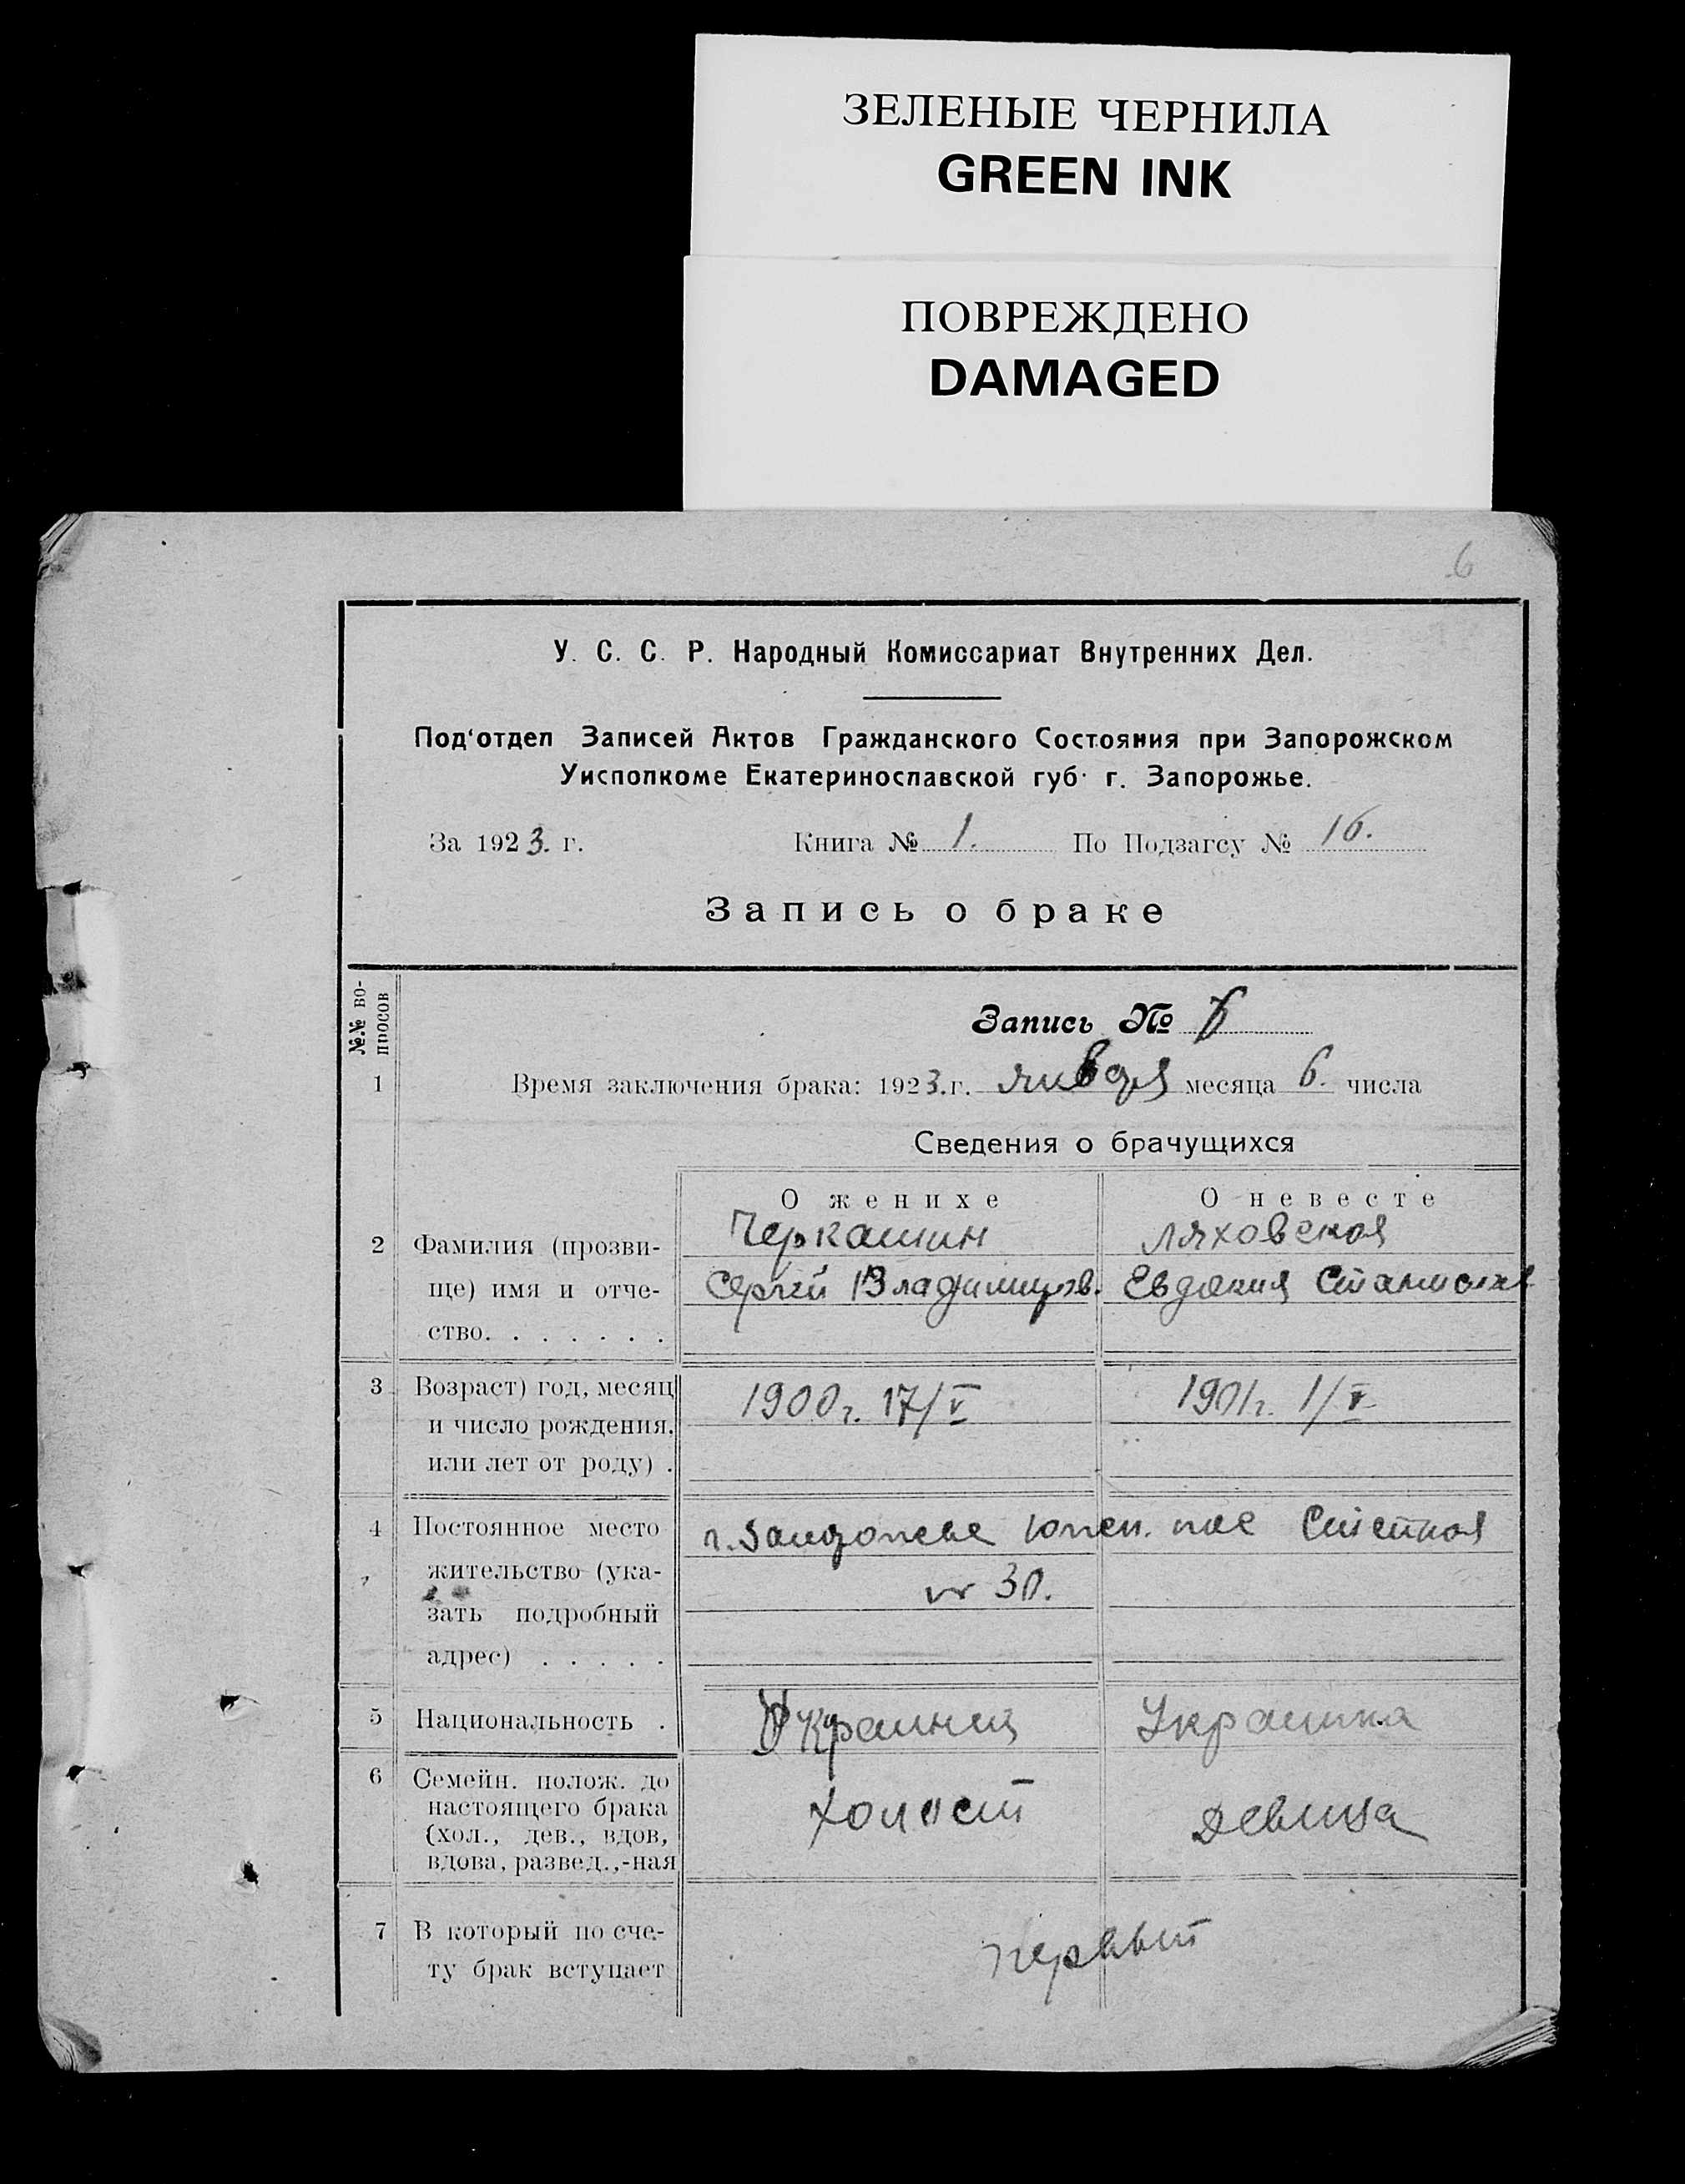 ЗЕЛЕНЫЕ ЧЕРНИЛА
GREEN INK
ПОВРЕЖДЕНО
DAMAGED
6
У. С. С. Р. Народный Комиссариат Внутренних Дел.
Под‘отдел Записей Актов Гражданского Состояния при Запорожском
Уисполкоме Екатеринославской губ. г. Запорожье.
За 1923. г. Книга № 1. По Подзагсу № 16.
Запись о браке
№№ во-
просов
Запись № 6
1 Время заключения брака: 1923.г. января месяца 6. числа
Сведения о брачущихся
О женихе О невесте
Черкашин Ляховская
2 Фамилия (прозви-
ще) имя и отче- Сергей Владимиров. Евдокия Станислав
ство. . . . . . .
3 Возраст) год, месяц 1900г. 17/V 1901г. 1/V
и число рождения.
или лет от роду) .
4 Постоянное место г. Степная
жительство (ука- № 30.
зать подробный
адрес) . . . . .
5 Национальность . Украинец Украинка
6 Семейн. полож. до
настоящего брака холост девица
(хол., дев., вдов,
вдова, развед.,-ная
7 В который по сче- первый
ту брак вступает